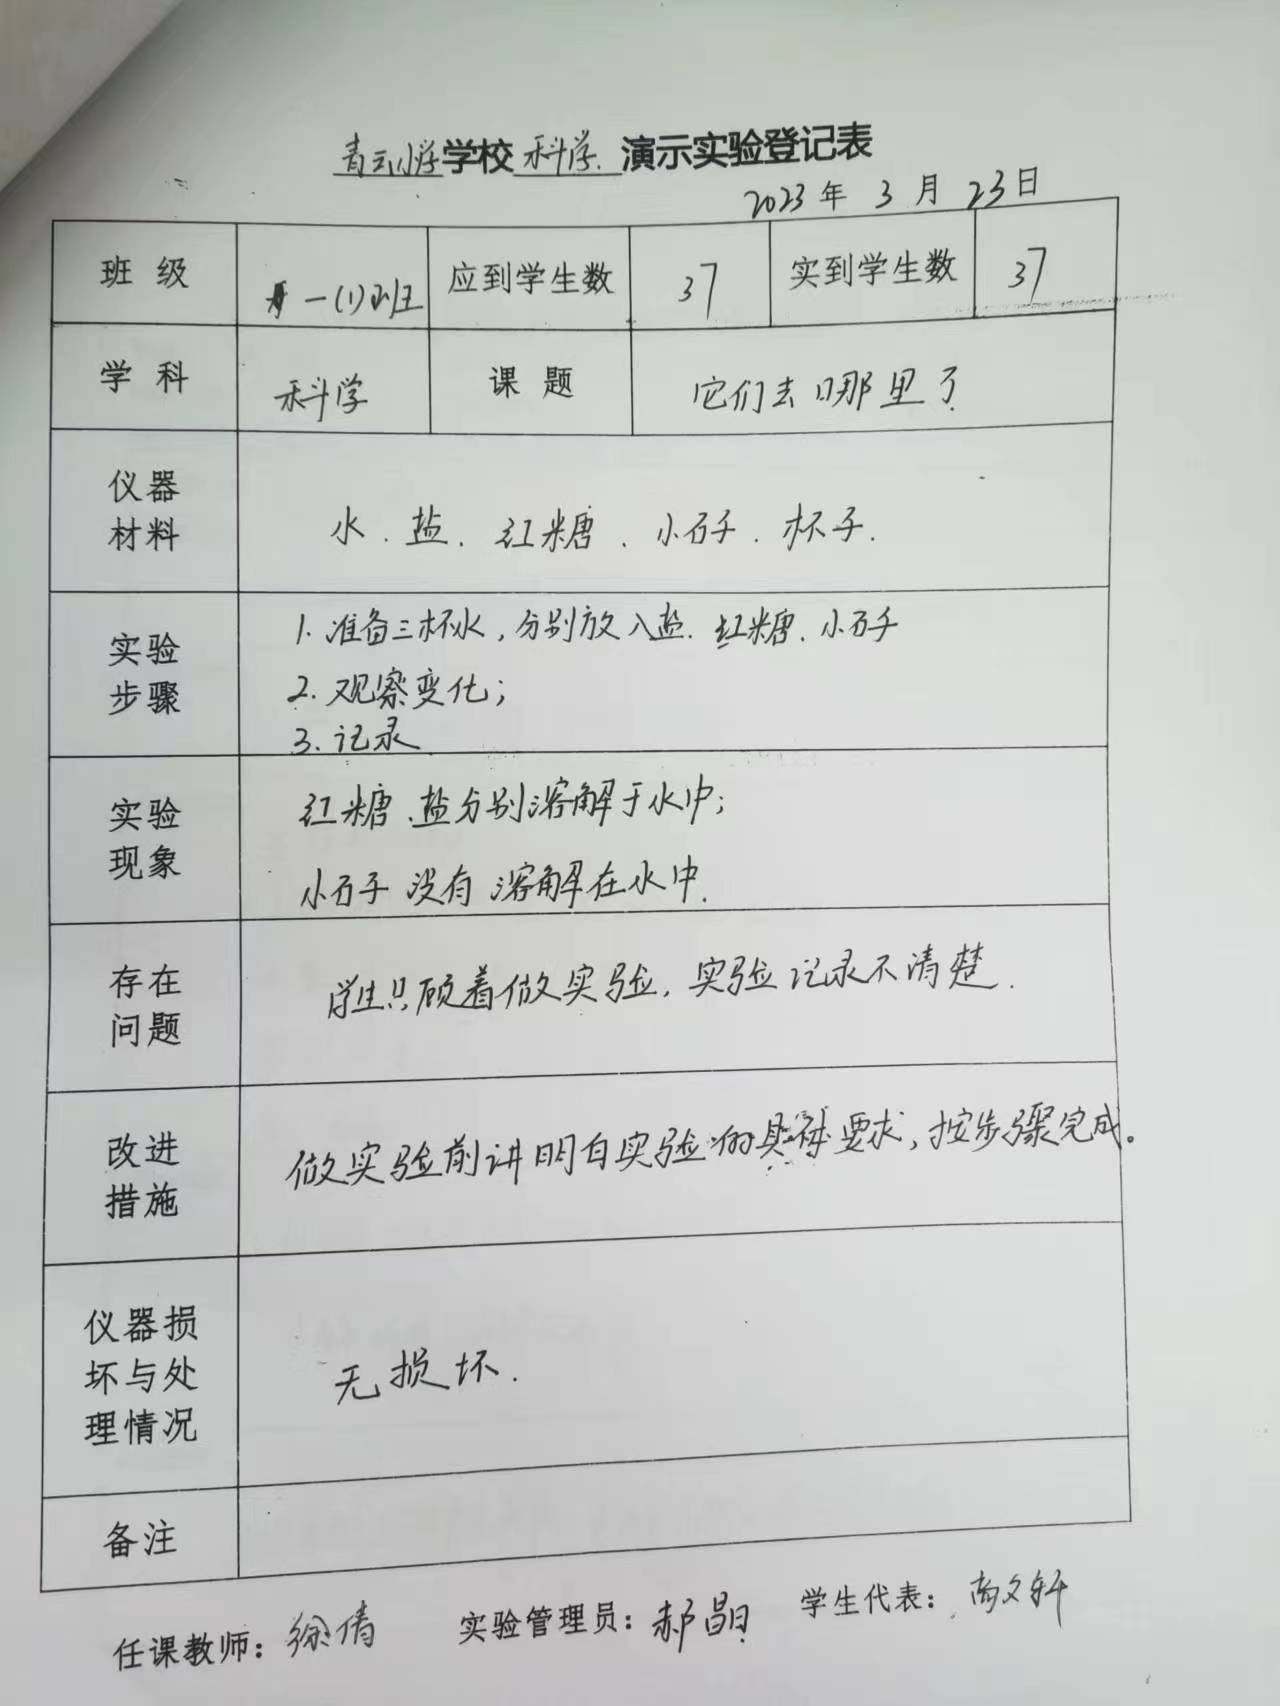 青云小学学校 科学 演示实验登记表
2023 年 3 月 23 日
班 级 一(1)班 应到学生数 37 实到学生数 37
学 科 科学 课 题 它们去哪里了
仪器
材料
水、盐、红糖、小石子、杯子.
实验
步骤
1. 准备三杯水,分别放入盐、红糖、小石子
2. 观察变化;
3. 记录
实验
现象
红糖、盐分别溶解于水中;
小石子没有溶解在水中.
存在
问题
学生只顾着做实验,实验记录不清楚.
改进
措施
做实验前讲明白实验的具体要求,按步骤完成。
仪器损
坏与处
理情况
无损坏.
备注
任课教师:徐倩 实验管理员:郝 学生代表:文轩